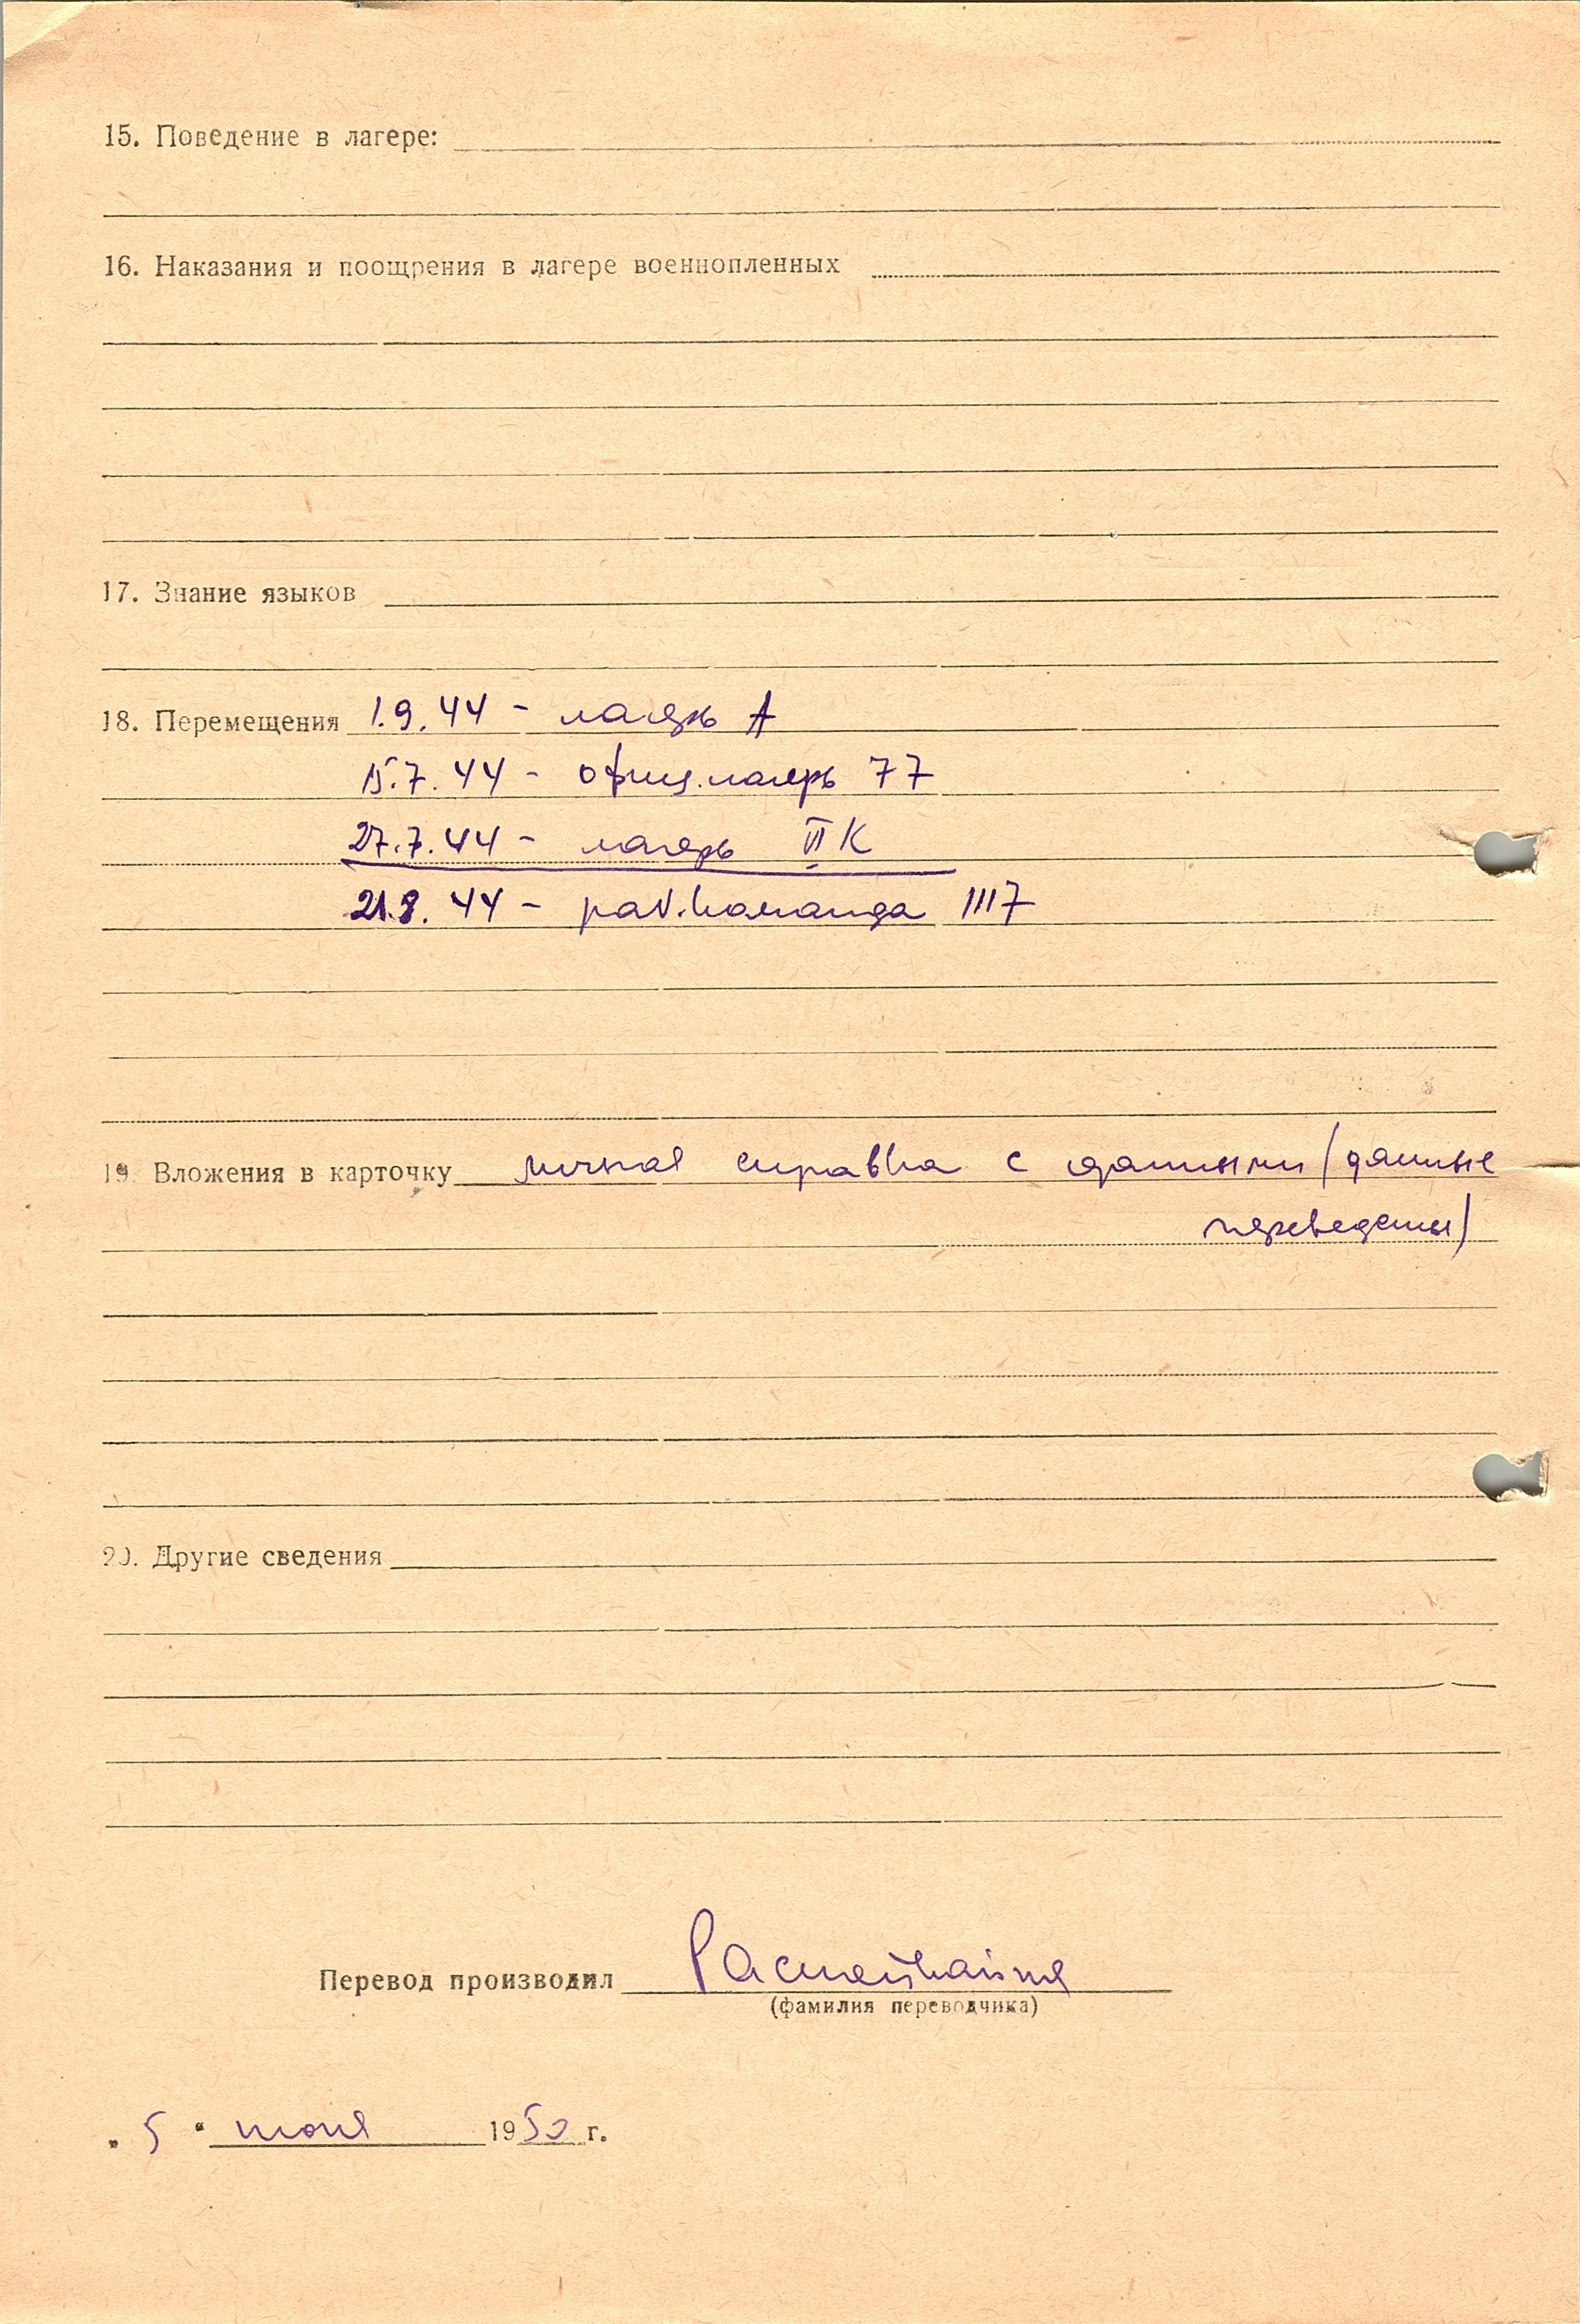 15. Поведение в лагере:
16. Наказания и поощрения в лагере военнопленных
17. Знание языков
18. Перемещения 1.9.44 - лагерь А
15.7.44 - офиц. лагерь 77
27.7.44 - лагерь VI К
21.8.44 - раб. команда 1117
19. Вложения в карточку личная справка с данными /данные
переведены/
20. Другие сведения
Перевод производил
(фамилия переводчика)
„ 5 “ июня 1950 г.